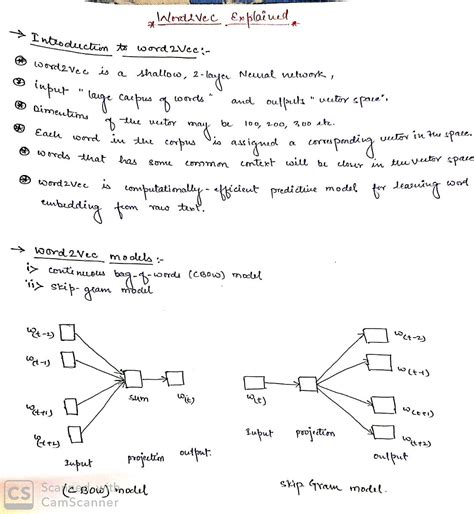 * Word2Vec Explained *
→ Introduction to word2Vec:-
* word2Vec is a shallow, 2-layer Neural network,
* input "large corpus of words" and outputs "vector space".
* Dimentions of the vector may be 100, 200, 300 etc.
* Each word in the corpus is assigned a corresponding vector in the space.
* words that has some common context will be closer in the vector space
* word2vec is computationally-efficient predictive model for learning word
embedding from raw text.
→ word2Vec models:-
i> continuous bag-of-words (CBOW) model
ii> skip-gram model
w(t-2)
w(t-1)
w(t+1)
w(t+2)
sum
w(t)
Input projection output
(CBOW) model
w(t)
w(t-2)
w(t-1)
w(t+1)
w(t+2)
Input projection output
skip Gram model.
CS Scanned with
CamScanner